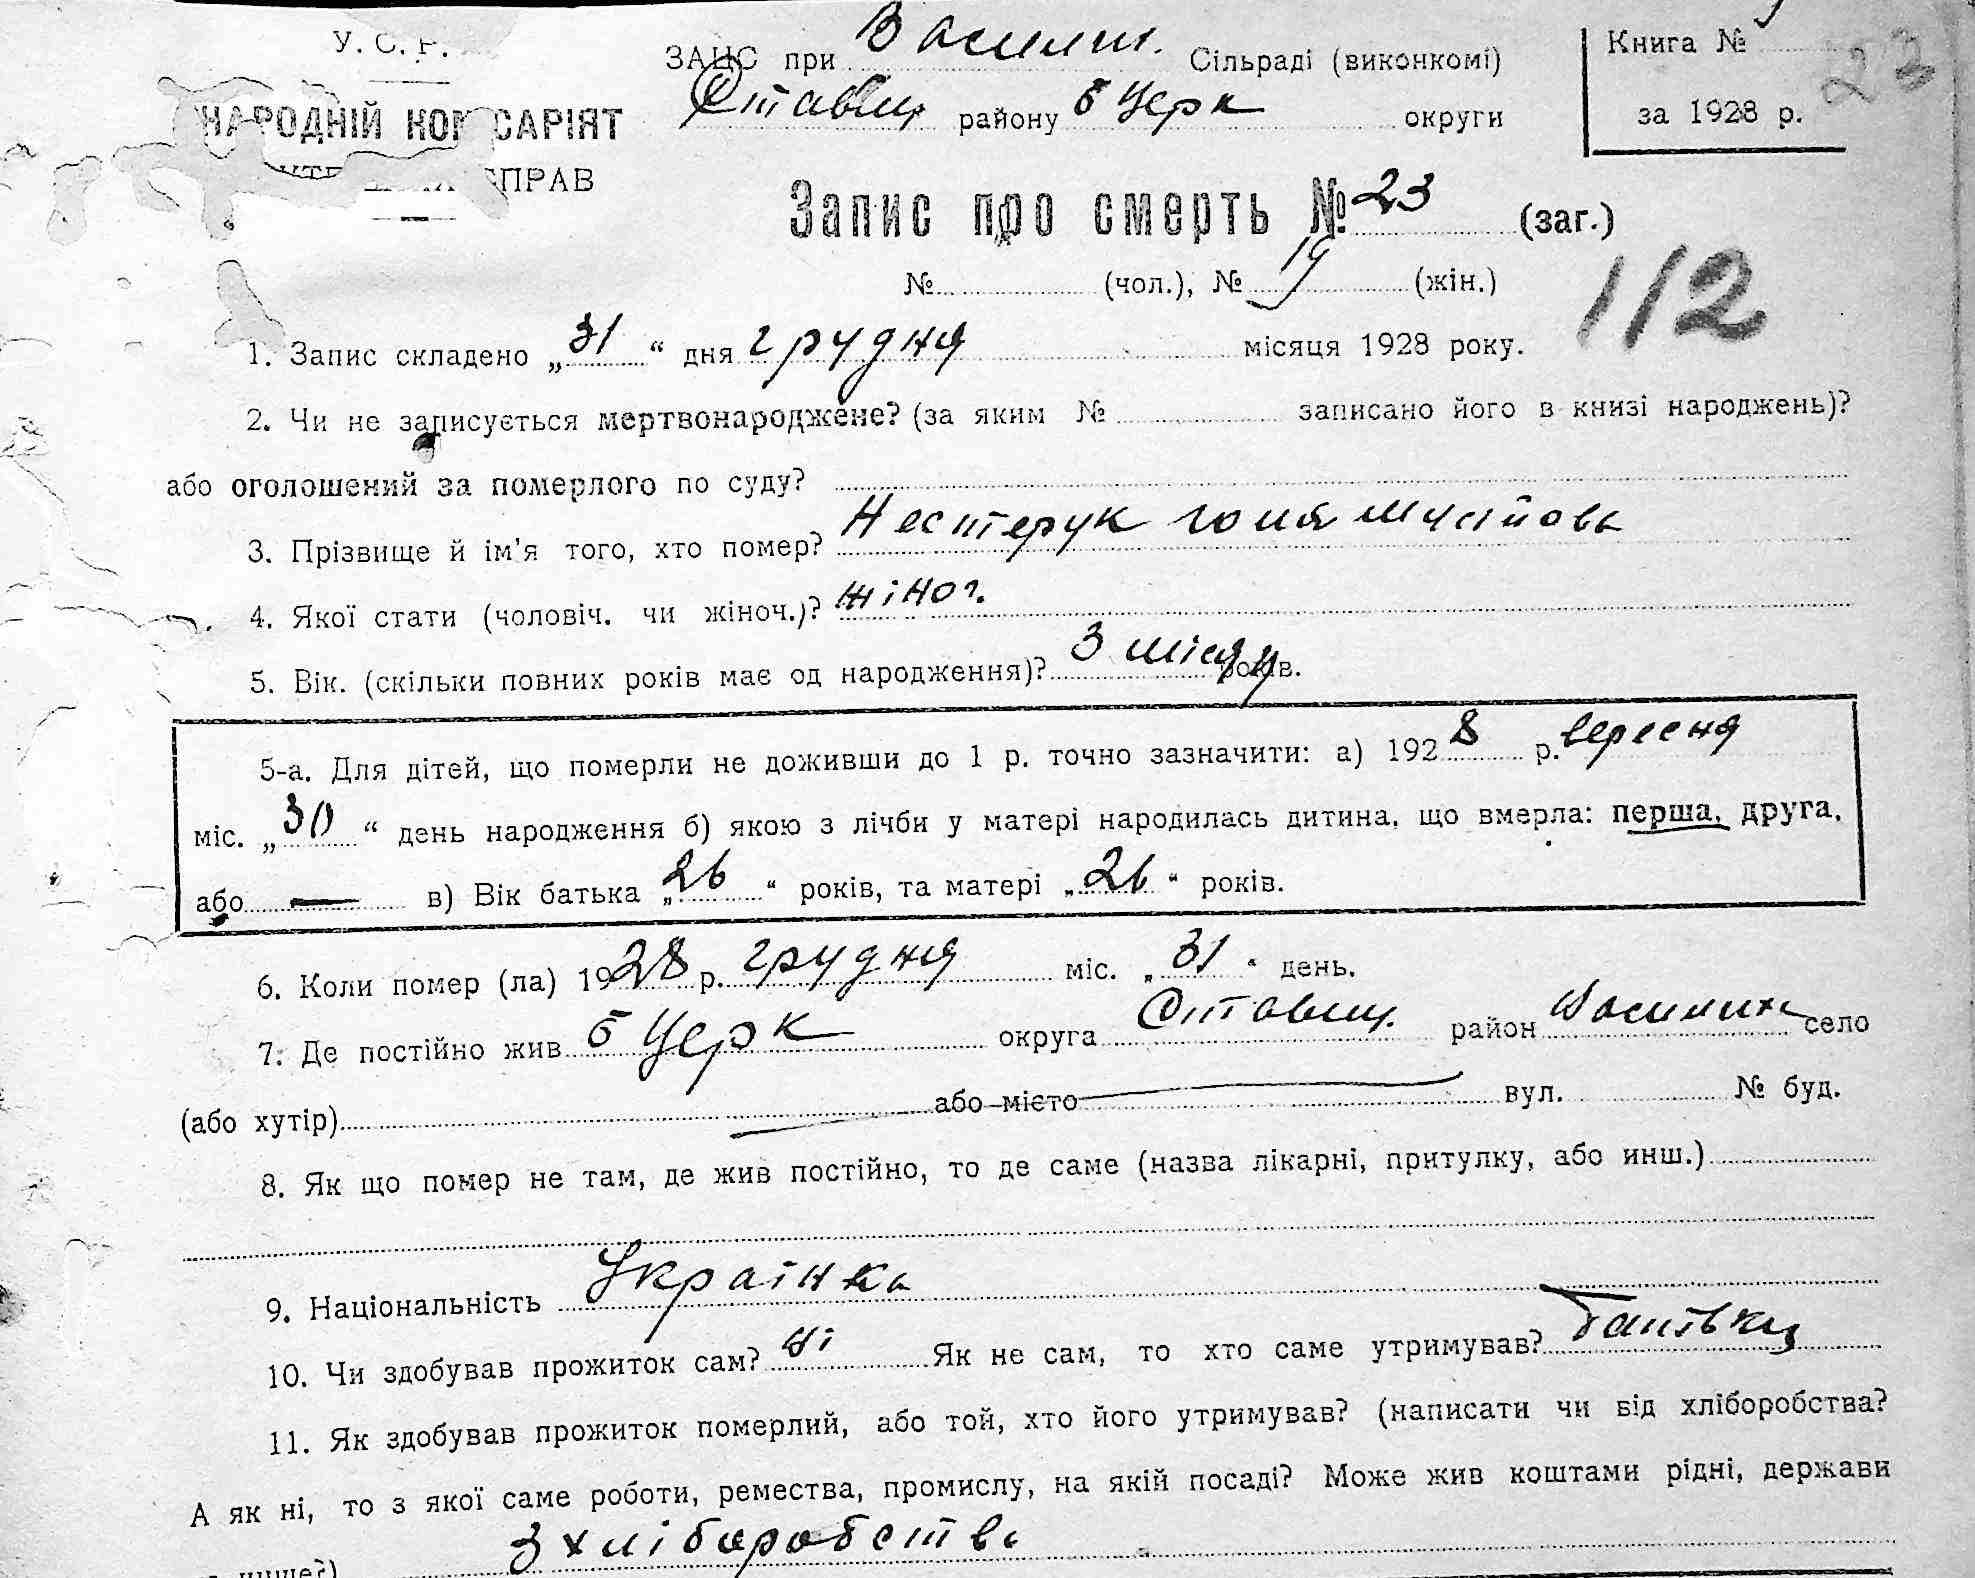 У. С. Р.
ЗАЦС при Василин. Сільраді (виконкомі)
Книга №
23
НАРОДНІЙ КОМІСАРІЯТ
Ставищ району Б Церк округи
за 1928 р.
СПРАВ
Запис про смерть № 23 (заг.)
№ (чол.), № 19 (жін.)
112
1. Запис складено „31“ дня грудня місяця 1928 року.
2. Чи не записується мертвонароджене? (за яким № записано його в книзі народжень)?
або оголошений за померлого по суду?
3. Прізвище й ім'я того, хто помер? Нестерук
4. Якої стати (чоловіч. чи жіноч.)? жіноч.
5. Вік. (скільки повних років має од народження)? 3 місяц років.
5-а. Для дітей, що померли не доживши до 1 р. точно зазначити: а) 1928 р. вересня
міс. „30“ день народження б) якою з лічби у матері народилась дитина, що вмерла: перша, друга,
або — в) Вік батька „26“ років, та матері „26“ років.
6. Коли помер (ла) 1928 р. грудня міс. „31“ день.
7. Де постійно жив Б Церк округа Ставищ. район Василин село
(або хутір) або місто вул. № буд.
8. Як що помер не там, де жив постійно, то де саме (назва лікарні, притулку, або инш.)
9. Національність Українка
10. Чи здобував прожиток сам? ні Як не сам, то хто саме утримував? батьки
11. Як здобував прожиток померлий, або той, хто його утримував? (написати чи від хліборобства?
А як ні, то з якої саме роботи, ремества, промислу, на якій посаді? Може жив коштами рідні, держави
з хліборобства